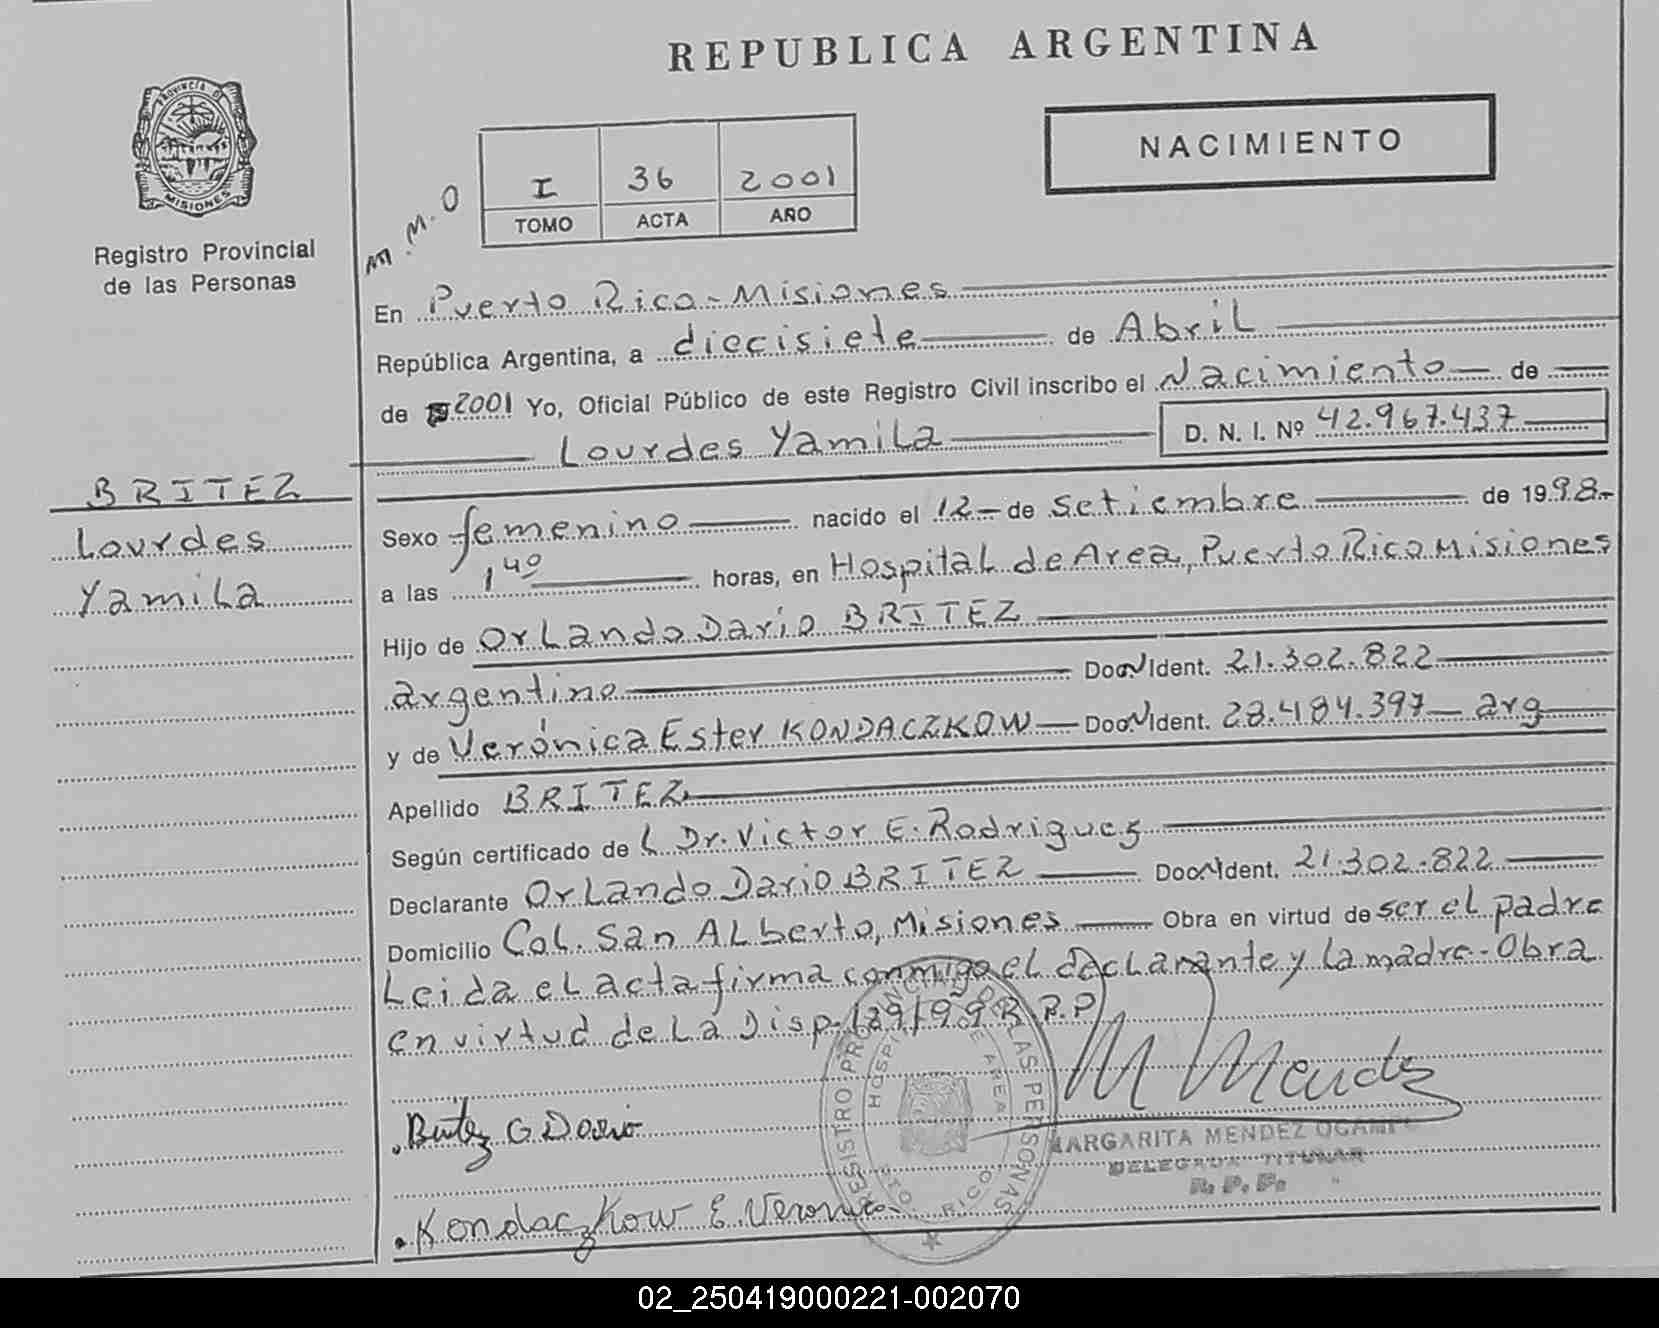 REPUBLICA ARGENTINA
PROVINCIA DE
MISIONES
Registro Provincial
de las Personas
NACIMIENTO
M.M.O
I 36 2001
TOMO ACTA AÑO
En Puerto Rico - Misiones
República Argentina, a diecisiete de Abril
de 2001 Yo, Oficial Público de este Registro Civil inscribo el Nacimiento de
Lourdes Yamila D. N. I. Nº 42.967.437
BRITEZ
Lourdes
Yamila
Sexo femenino nacido el 12 de Setiembre de 1998.-
a las 1 40 horas, en Hospital de Area, Puerto Rico Misiones
Hijo de Orlando Dario BRITEZ
argentino Doc. N Ident. 21.302.822
y de Verónica Ester KONDACZKOW Doc. N Ident. 23.484.397 - arg
Apellido BRITEZ
Según certificado de L Dr. Victor E. Rodriguez
Declarante Orlando Dario BRITEZ Doc. N Ident. 21.302.822
Domicilio Col. San Alberto, Misiones Obra en virtud de ser el padre
Leida el acta firma conmigo el declarante y la madre - Obra
en virtud de la Disp. 139/99 R.P.P
Britez G Dario
M Mendez
REGISTRO PROVINCIAL DE LAS PERSONAS
HOSPITAL DE AREA
PTO RICO
MARGARITA MENDEZ OCAMPO
DELEGADA TITULAR
R. P. P.
Kondaczkow E Veronica
02_250419000221-002070